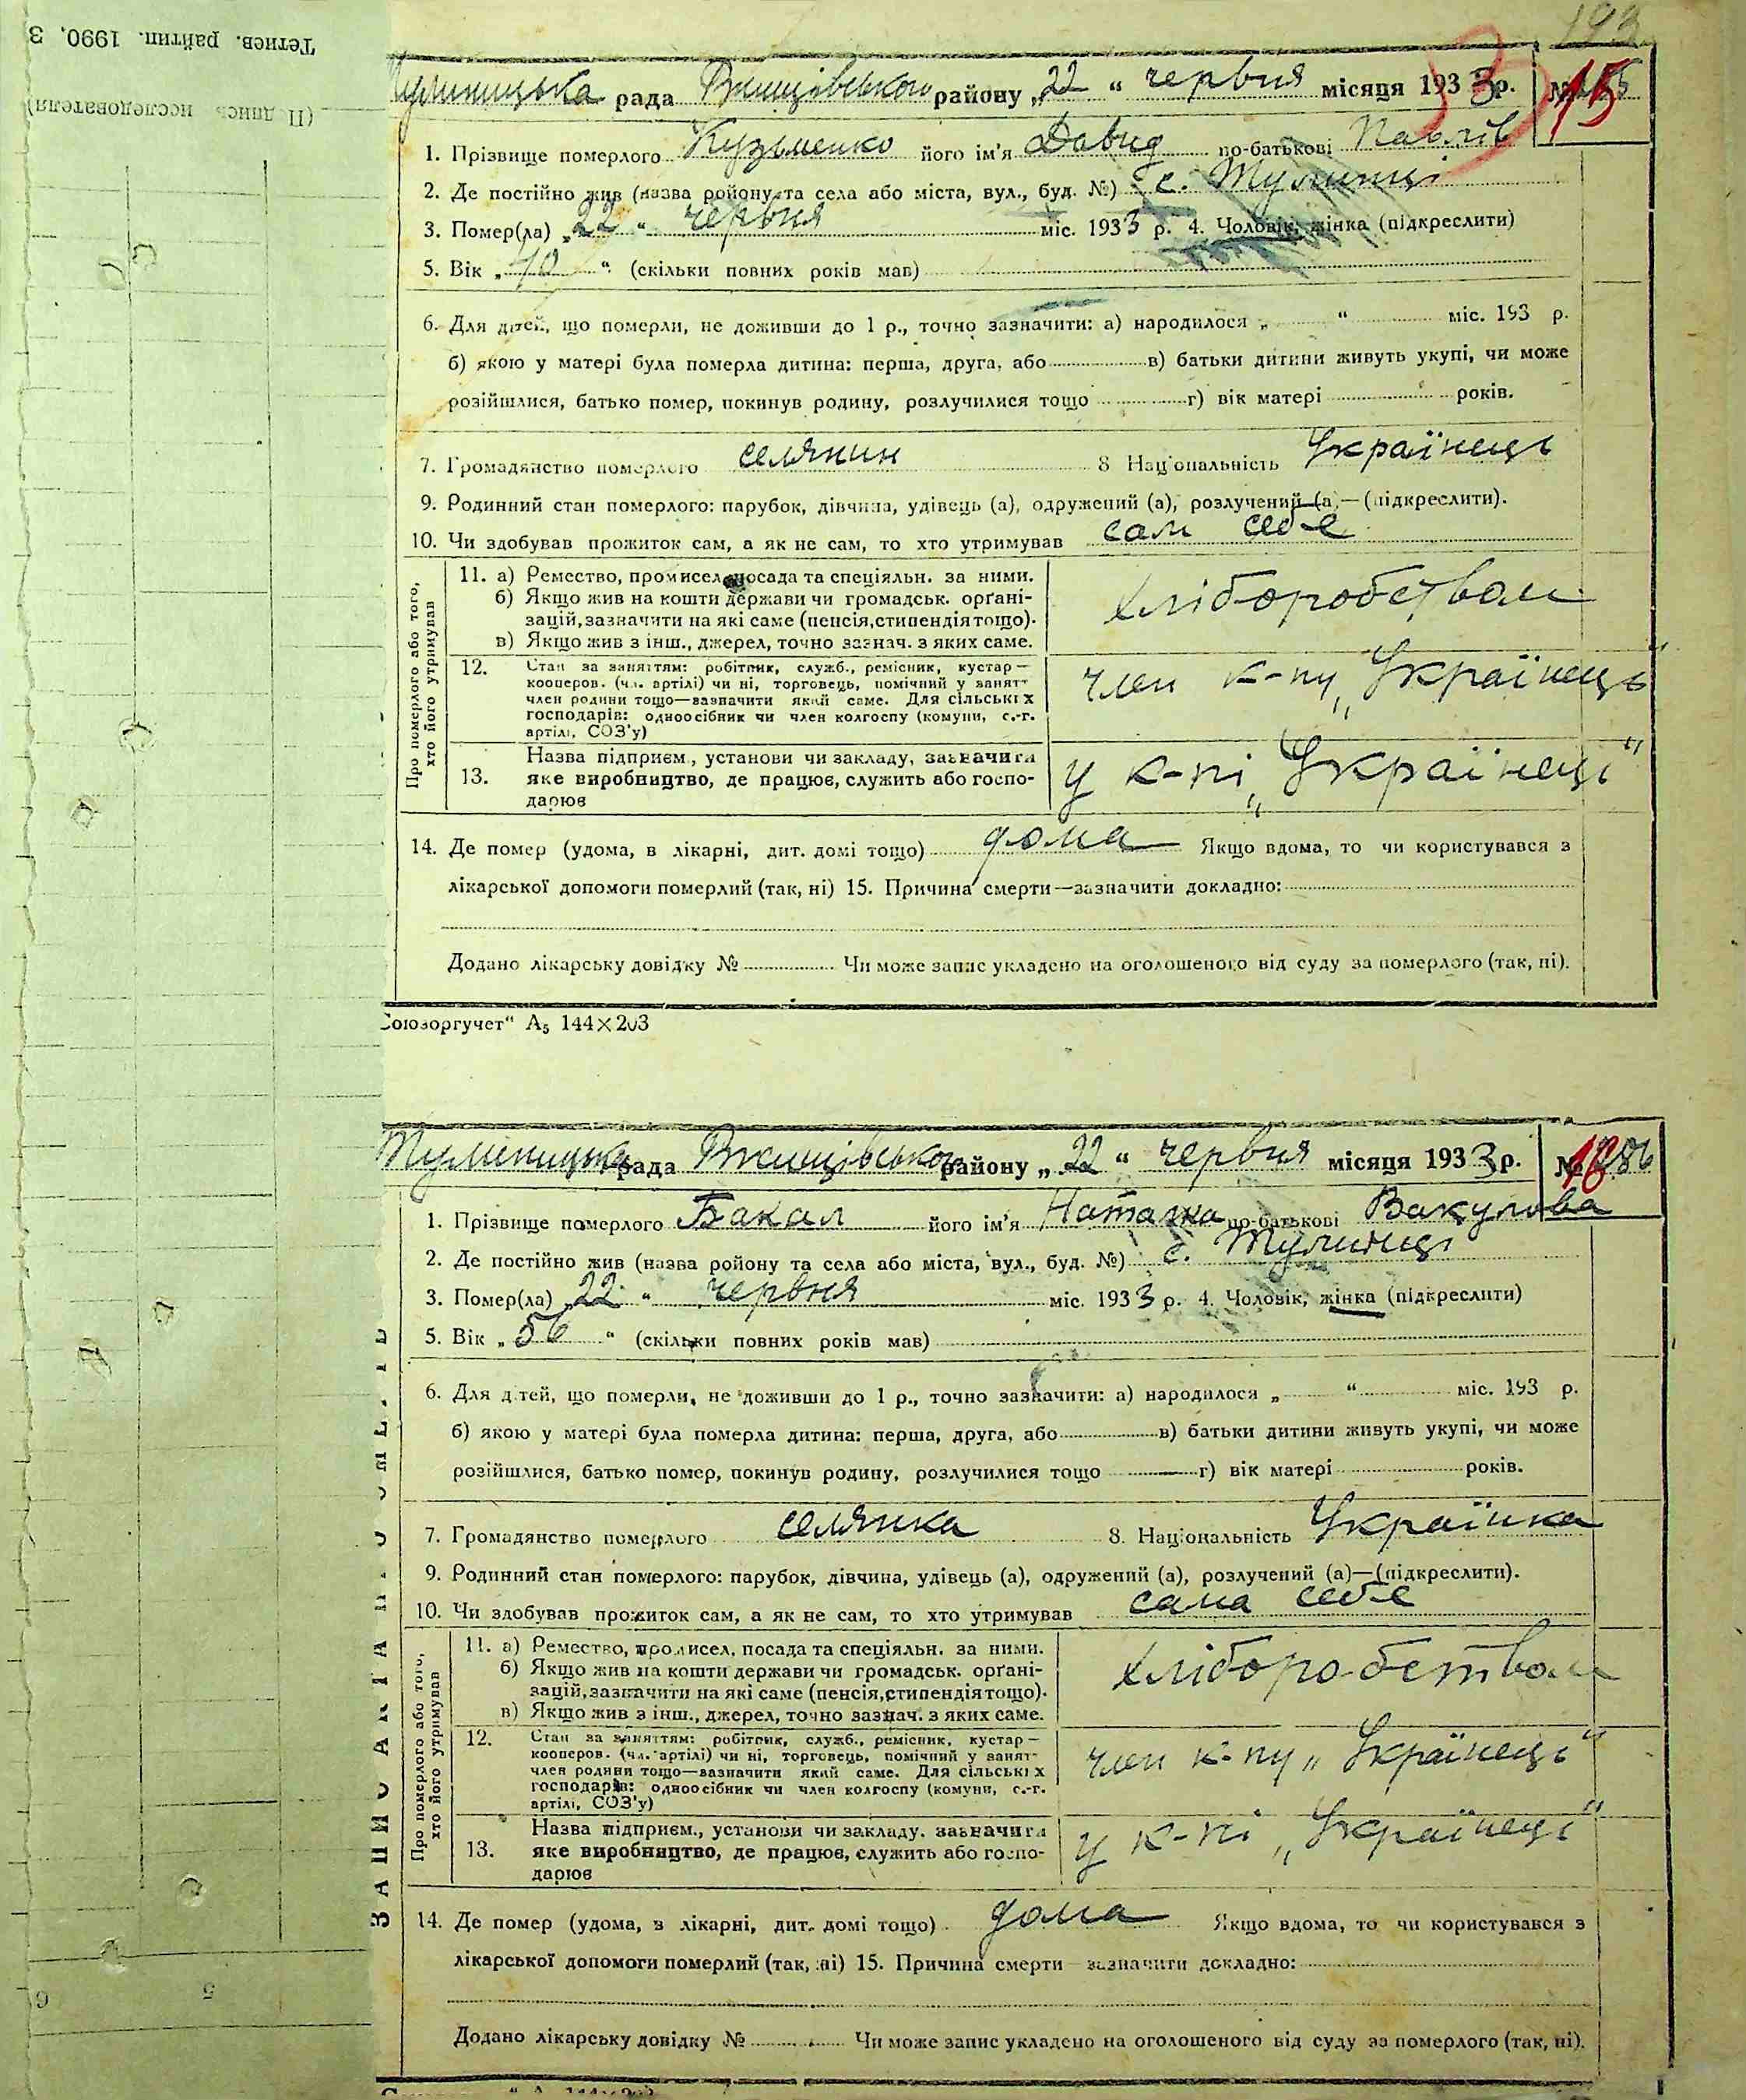 193
Тетиев. райтип. 1990. З
(П дпись исследователя)
Тулиницька рада Ржищівського району „22“ червня місяця 1933 р. № 15
1. Прізвище померлого Кузьменко його ім'я Давид по-батькові Павлів
2. Де постійно жив (назва ройону та села або міста, вул., буд. №) с. Тулинці
3. Помер(ла) „22“ червня міс. 1933 р. 4. Чоловік, жінка (підкреслити)
5. Вік „ “ (скільки повних років мав)
6. Для дітей, що померли, не доживши до 1 р., точно зазначити: а) народилося „ “ міс. 193 р.
б) якою у матері була померла дитина: перша, друга, або в) батьки дитини живуть укупі, чи може
розійшлися, батько помер, покинув родину, розлучилися тощо г) вік матері років.
7. Громадянство померлого селянин 8 Національність Українець
9. Родинний стан померлого: парубок, дівчина, удівець (а), одружений (а), розлучений (а)—(підкреслити).
10. Чи здобував прожиток сам, а як не сам, то хто утримував сам себе
Про померлого або того,
хто його утримував
11. а) Ремество, промисел, посада та спеціяльн. за ними.
б) Якщо жив на кошти держави чи громадськ. орґані-
зацій, зазначити на які саме (пенсія, стипендія тощо).
в) Якщо жив з інш., джерел, точно зазнач. з яких саме.
хліборобством
12. Стан за заняттям: робітник, служб., ремісник, кустар—
кооперов. (чл. артілі) чи ні, торговець, помічний у занят-
член родини тощо—зазначити який саме. Для сільських
господарів: одноосібник чи член колгоспу (комуни, с.-г.
артілі, СОЗ'у)
член к-пу „Українець“
13. Назва підприєм., установи чи закладу, зазначити
яке виробництво, де працює, служить або госпо-
дарює
у к-пі „Українець“
14. Де помер (удома, в лікарні, дит. домі тощо) дома Якщо вдома, то чи користувався з
лікарської допомоги померлий (так, ні) 15. Причина смерти—зазначити докладно:
Додано лікарську довідку № Чи може запис укладено на оголошеного від суду за померлого (так, ні).
Союзоргучет“ А5 144×203
Тулиницька рада Ржищівського району „22“ червня місяця 1933 р. № 16
1. Прізвище померлого Бакал його ім'я Наталка по-батькові Вакулова
2. Де постійно жив (назва ройону та села або міста, вул., буд. №) с. Тулинці
3. Помер(ла) „22“ червня міс. 1933 р. 4. Чоловік, жінка (підкреслити)
5. Вік „56“ (скільки повних років мав)
6. Для дітей, що померли, не доживши до 1 р., точно зазначити: а) народилося „ “ міс. 193 р.
б) якою у матері була померла дитина: перша, друга, або в) батьки дитини живуть укупі, чи може
розійшлися, батько помер, покинув родину, розлучилися тощо г) вік матері років.
7. Громадянство померлого селянка 8. Національність Українка
9. Родинний стан померлого: парубок, дівчина, удівець (а), одружений (а), розлучений (а)—(підкреслити).
10. Чи здобував прожиток сам, а як не сам, то хто утримував сама себе
Про померлого або того,
хто його утримував
11. а) Ремество, промисел, посада та спеціяльн. за ними.
б) Якщо жив на кошти держави чи громадськ. орґані-
зацій, зазначити на які саме (пенсія, стипендія тощо).
в) Якщо жив з інш., джерел, точно зазнач. з яких саме.
хліборобством
12. Стан за заняттям: робітник, служб., ремісник, кустар—
кооперов. (чл. артілі) чи ні, торговець, помічний у занят-
член родини тощо—зазначити який саме. Для сільських
господарів: одноосібник чи член колгоспу (комуни, с.-г.
артілі, СОЗ'у)
член к-пу „Українець“
13. Назва підприєм., установи чи закладу, зазначити
яке виробництво, де працює, служить або госпо-
дарює
у к-пі „Українець“
14. Де помер (удома, в лікарні, дит. домі тощо) дома Якщо вдома, то чи користувався з
лікарської допомоги померлий (так, ні) 15. Причина смерти зазначити докладно:
Додано лікарську довідку № Чи може запис укладено на оголошеного від суду за померлого (так, ні).